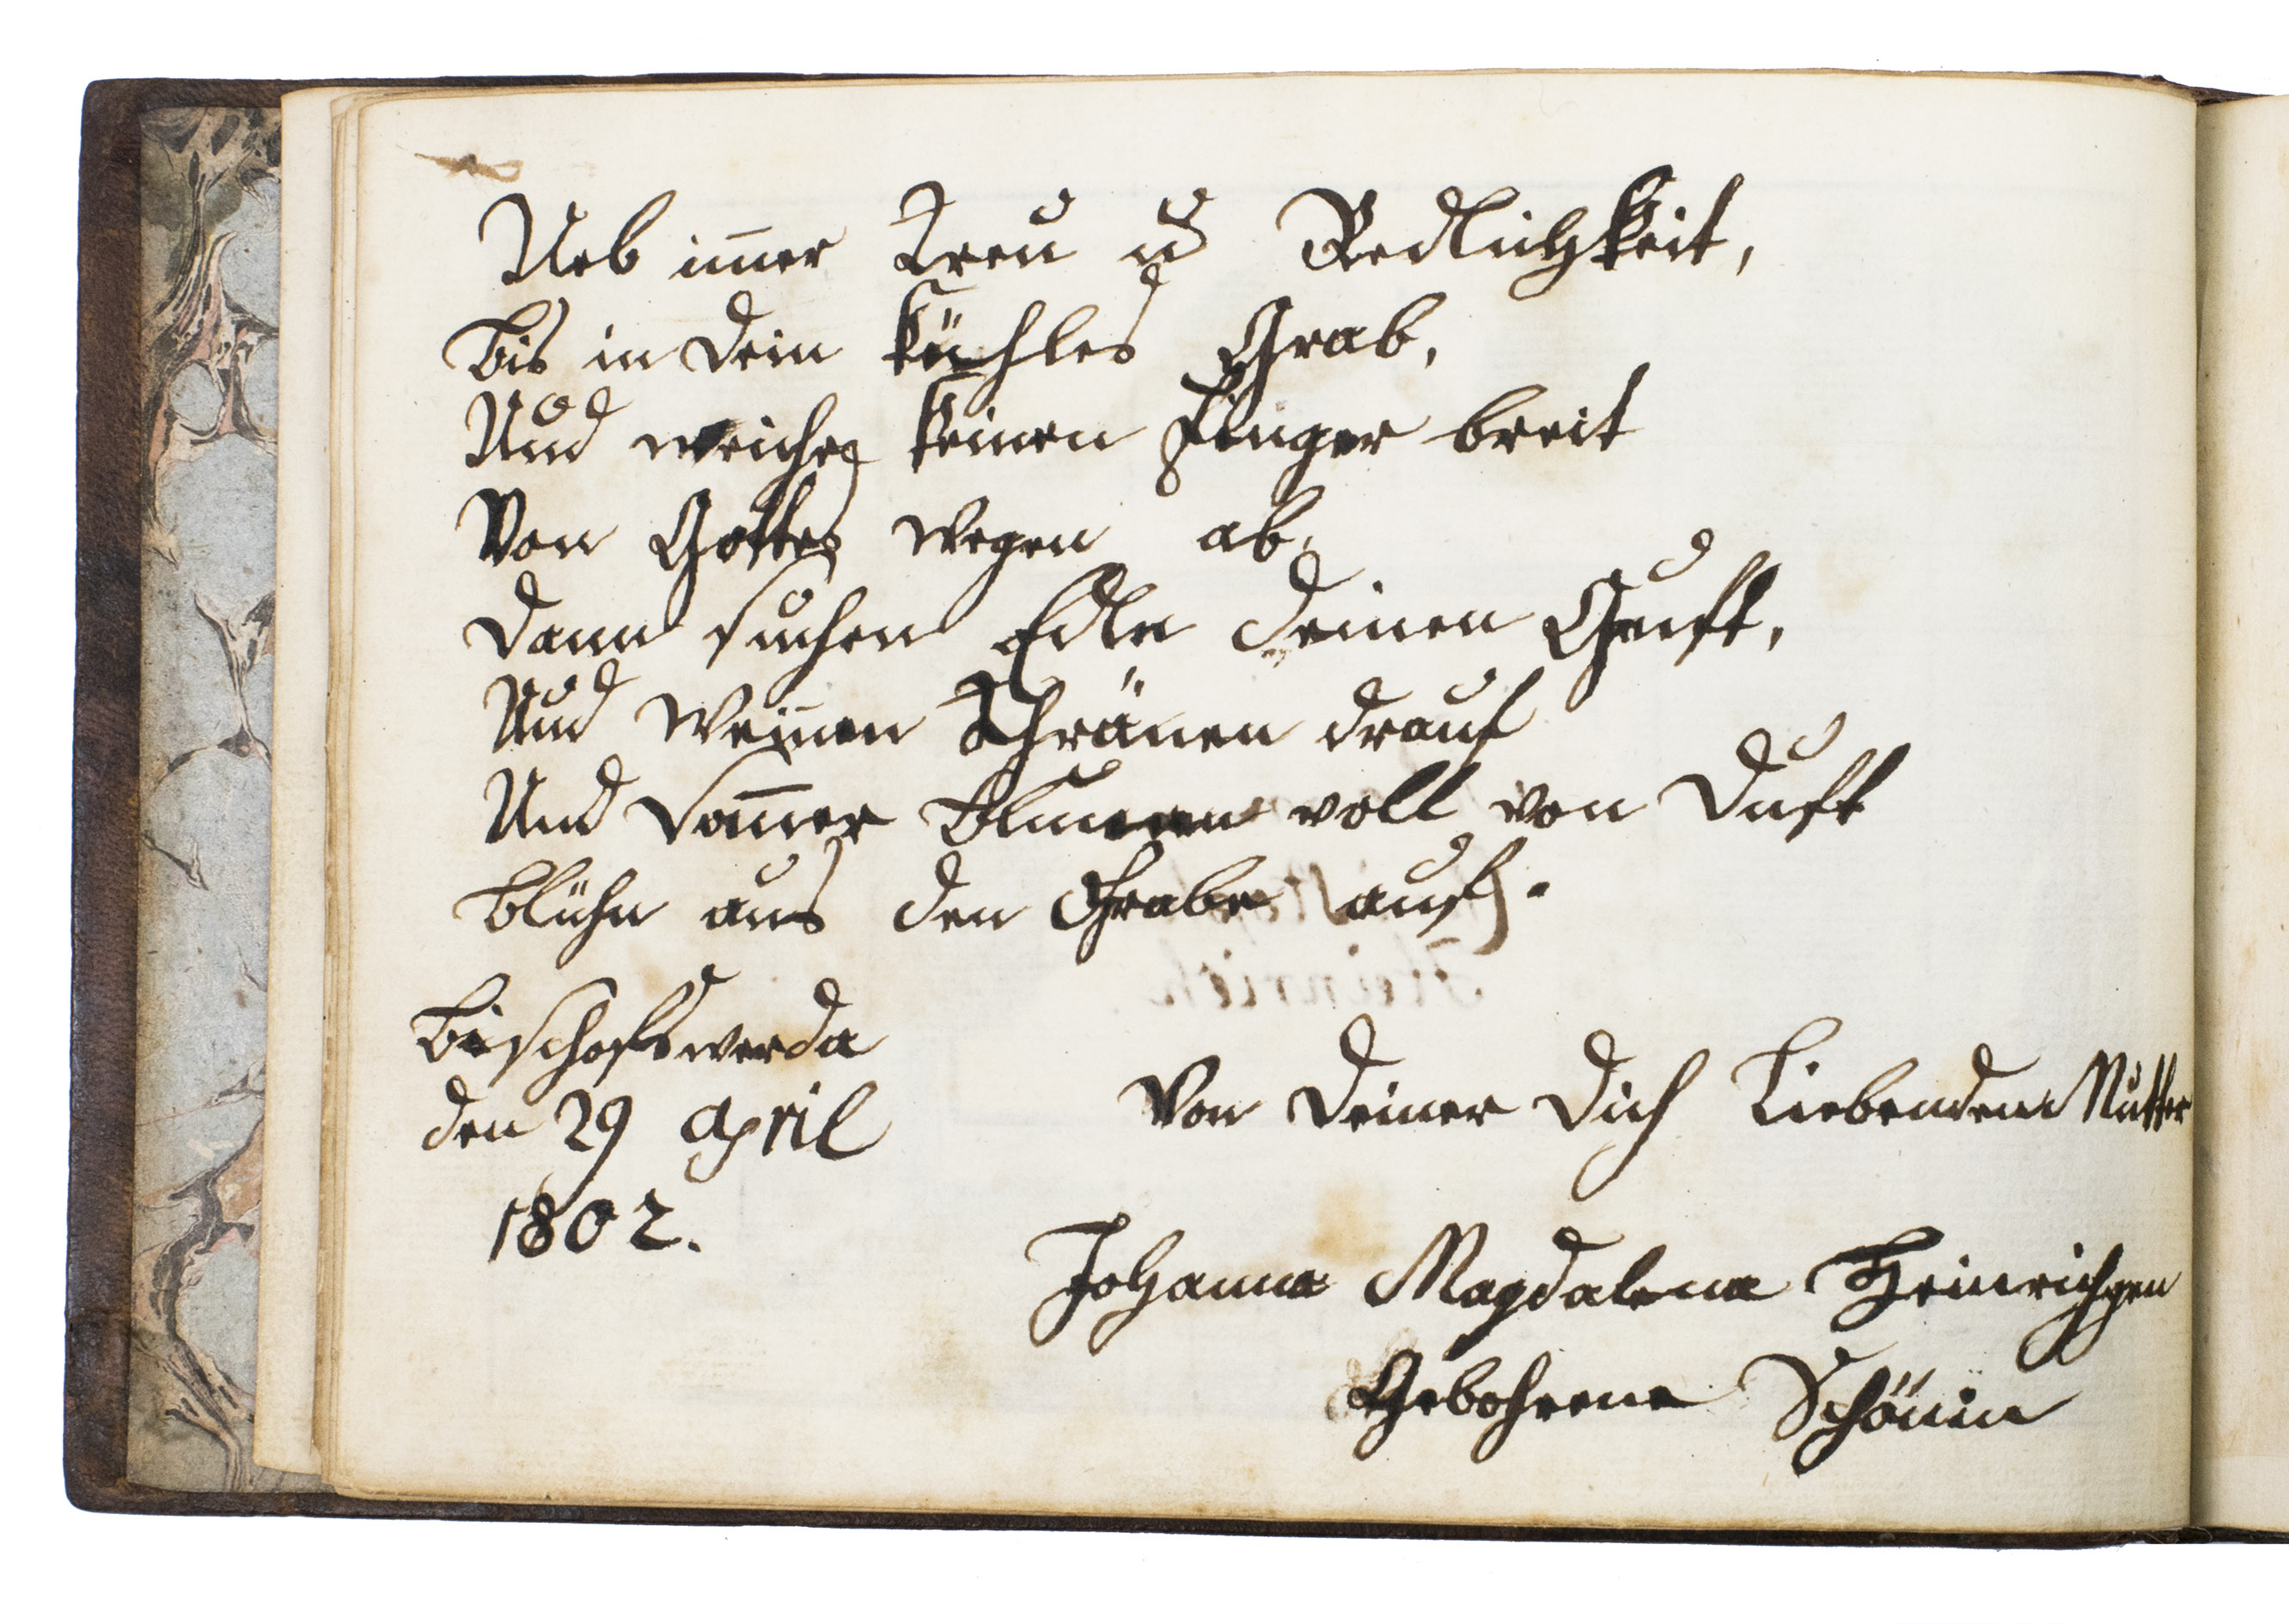 Ueb im̄er Treu u Redlichkeit,
Bis in dein kühles Grab,
Und weiche keinen Finger breit
Von Gottes wegen ab,
Dann suchen Edle deinen Gruft,
Und Weinen Thränen drauf
Und Som̄er Blumen voll von Duft
Blühn aus den Grabe auf.
Bischofswerda
den 29 April
1802.
Von Deiner Dich Liebenden Mutter
Johanna Magdalena Heinrichen
Gebohrene Schönin